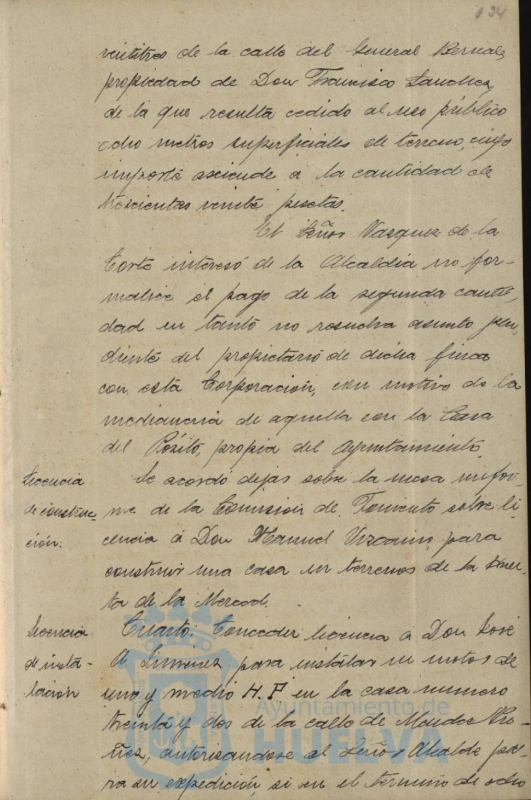 124
veintitres de la calle del General Bernal,
propiedad de Don Francisco Sanchez,
de la que resulta cedido al uso público
ocho metros superficiales de terreno, cuyo
importe asciende a la cantidad de
trescientas veinte pesetas.
El Señor Vazquez de la
Corte interesó de la Alcaldia no for-
malice el pago de la segunda canti-
dad en tanto no resuelva asunto pen-
diente del propietario de dicha finca
con esta Corporación, con motivo de la
medianeria de aquella con la Casa
del Pósito, propia del Ayuntamiento.
Licencia
de construc-
ción.
Se acordó dejar sobre la mesa infor-
me de la Comision de Fomento sobre li-
cencia á Don Manuel Vizcaino para
construir una casa en terrenos de la Huer-
ta de la Merced.
Licencia
de insta-
lación
Cuarto: Conceder licencia a Don José
A. Jimenez para instalar un motor de
uno y medio H.P en la casa numero
treinta y dos de la calle de Mendez Nu-
ñez, autorizandose al Señor Alcalde pa-
ra su expedición, si en el termino de ocho
Ayuntamiento de
HUELVA